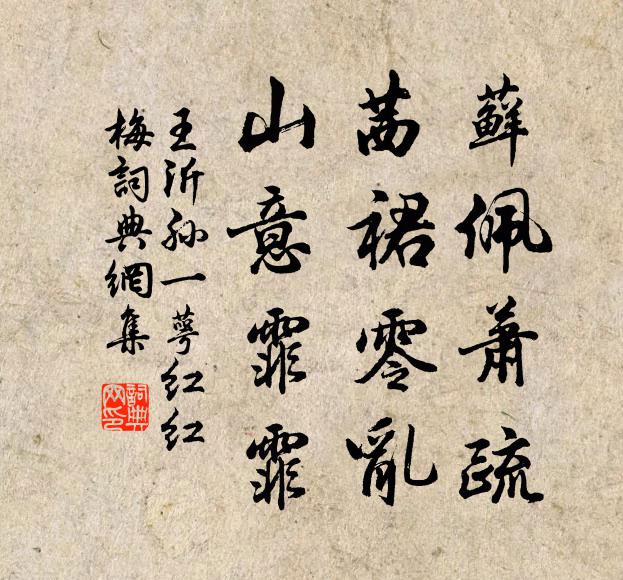 蘚佩蕭疏
茜裙零亂
山意霏霏
王沂孙一萼红红
梅詞典網集
詞典網印